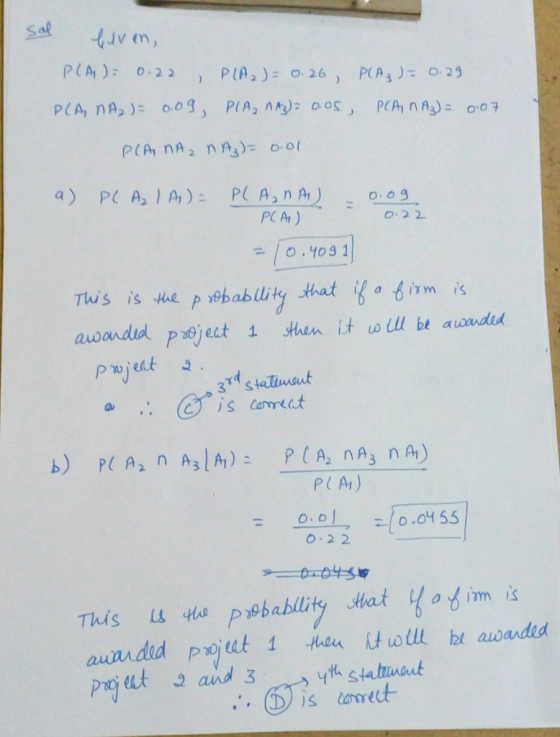 Sol Given,
P(A₁) = 0.22 , P(A₂) = 0.26 , P(A₃) = 0.29
P(A₁ ∩A₂) = 0.09, P(A₂ ∩A₃) = 0.05 , P(A₁ ∩A₃) = 0.07
P(A₁ ∩A₂ ∩A₃) = 0.01
a) P( A₂ | A₁) = P( A₂ ∩ A₁) / P(A₁) = 0.09 / 0.22
= 0.4091
This is the probability that if a firm is
awarded project 1 then it will be awarded
project 2.
∴ (C) → 3rd statement is correct
b) P( A₂ ∩ A₃ | A₁) = P( A₂ ∩A₃ ∩A₁) / P(A₁)
= 0.01 / 0.22 = 0.0455
This is the probability that if a firm is
awarded project 1 then it will be awarded
project 2 and 3.
∴ (D) → 4th statement is correct